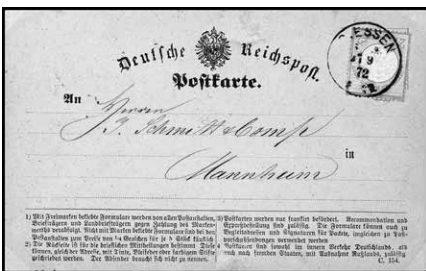 Deutsche Reichspost.
Postkarte.
ESSEN
9
72
An Herren
J. Schmitt & Comp
in
Mannheim
1) Mit Freimarken beklebte Formulare werden von allen Postanstalten,
Briefträgern und Landbriefträgern gegen Zahlung des Marken-
werths verabfolgt. Nicht mit Marken beklebte Formulare sind bei den
Postanstalten zum Preise von ¼ Groschen für je 5 Stück käuflich.
2) Die Rückseite ist für die brieflichen Mittheilungen bestimmt. Diese
können, gleich der Adresse, mit Tinte, Bleifeder oder farbigem Stifte
geschrieben werden. Der Absender braucht sich nicht zu nennen.
3) Postkarten werden nur frankirt befördert. Recommandation und
Expreßbestellung sind zulässig. Die Formulare können auch zu
Begleitadressen und Signaturen für Packete, imgleichen zu Post-
vorschußsendungen verwendet werden.
4) Postkarten sind sowohl im innern Verkehr Deutschlands, als
auch nach fremden Staaten, mit Ausnahme Rußlands, zulässig.
C. 154.